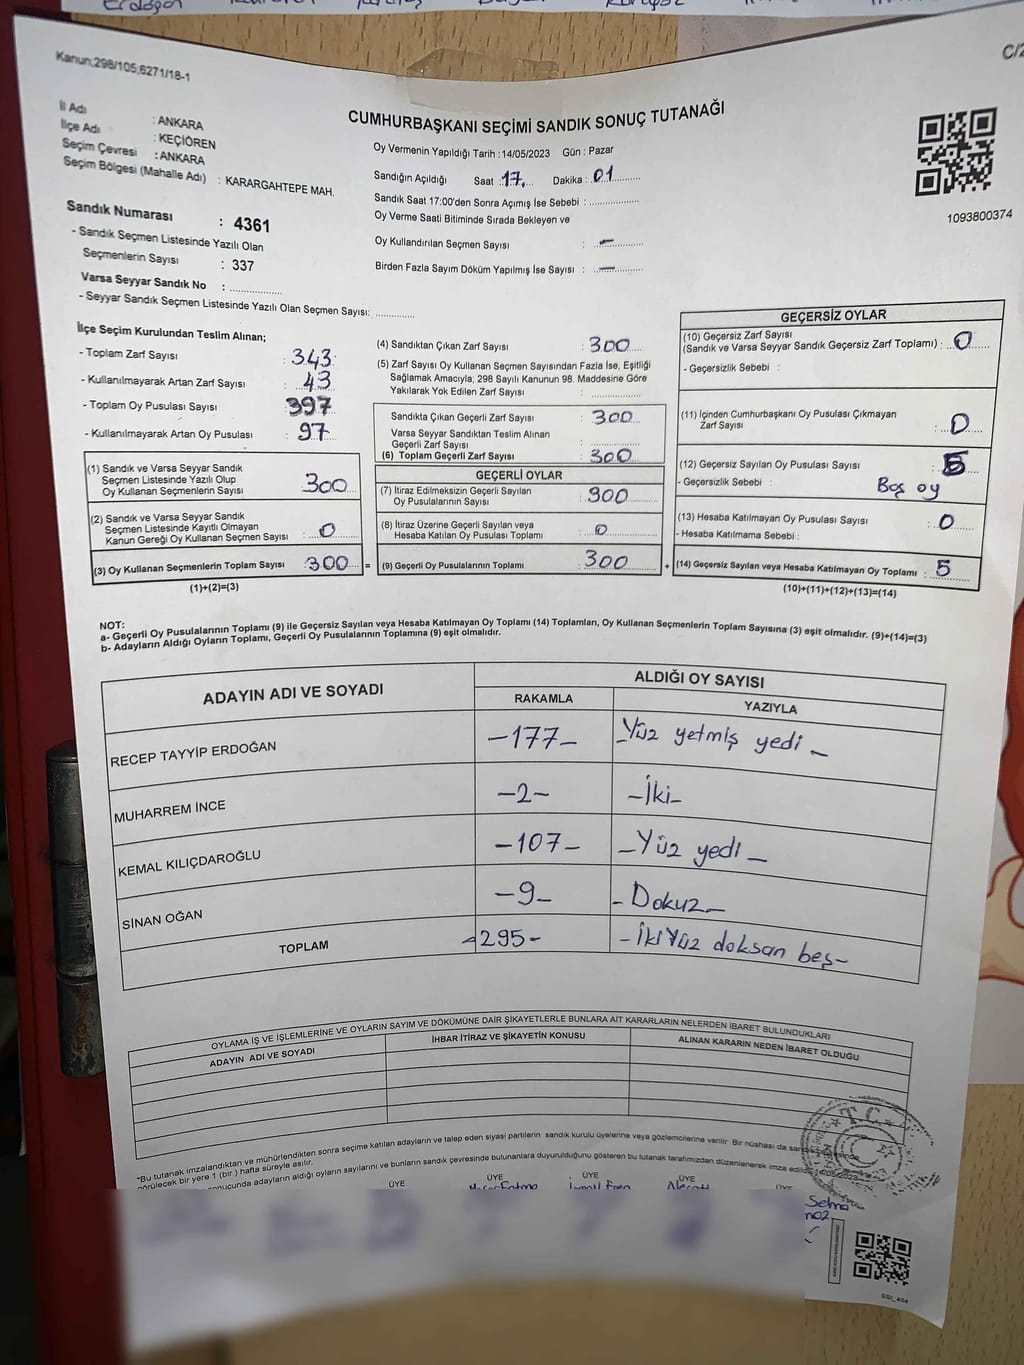 Erdoğan
Kanun;298/105;6271/18-1
C/2
CUMHURBAŞKANI SEÇİMİ SANDIK SONUÇ TUTANAĞI
İl Adı : ANKARA
İlçe Adı : KEÇİÖREN
Seçim Çevresi : ANKARA
Seçim Bölgesi (Mahalle Adı) : KARARGAHTEPE MAH.
Sandık Numarası : 4361
- Sandık Seçmen Listesinde Yazılı Olan
Seçmenlerin Sayısı : 337
Varsa Seyyar Sandık No : ..............
- Seyyar Sandık Seçmen Listesinde Yazılı Olan Seçmen Sayısı: ............
Oy Vermenin Yapıldığı Tarih : 14/05/2023 Gün : Pazar
Sandığın Açıldığı Saat : 17. Dakika : 01
Sandık Saat 17:00'den Sonra Açımış İse Sebebi : ..............
Oy Verme Saati Bitiminde Sırada Bekleyen ve
Oy Kullandırılan Seçmen Sayısı : –
Birden Fazla Sayım Döküm Yapılmış İse Sayısı : –
1093800374
İlçe Seçim Kurulundan Teslim Alınan;
- Toplam Zarf Sayısı : 343
- Kullanılmayarak Artan Zarf Sayısı : 43
- Toplam Oy Pusulası Sayısı : 397
- Kullanılmayarak Artan Oy Pusulası : 97
(1) Sandık ve Varsa Seyyar Sandık
Seçmen Listesinde Yazılı Olup
Oy Kullanan Seçmenlerin Sayısı : 300
(2) Sandık ve Varsa Seyyar Sandık
Seçmen Listesinde Kayıtlı Olmayan
Kanun Gereği Oy Kullanan Seçmen Sayısı : 0
(3) Oy Kullanan Seçmenlerin Toplam Sayısı : 300 =
(1)+(2)=(3)
(4) Sandıktan Çıkan Zarf Sayısı : 300
(5) Zarf Sayısı Oy Kullanan Seçmen Sayısından Fazla İse, Eşitliği
Sağlamak Amacıyla; 298 Sayılı Kanunun 98. Maddesine Göre
Yakılarak Yok Edilen Zarf Sayısı : ..............
Sandıkta Çıkan Geçerli Zarf Sayısı : 300
Varsa Seyyar Sandıktan Teslim Alınan
Geçerli Zarf Sayısı : ..............
(6) Toplam Geçerli Zarf Sayısı : 300
GEÇERLİ OYLAR
(7) İtiraz Edilmeksizin Geçerli Sayılan
Oy Pusulalarının Sayısı : 300
(8) İtiraz Üzerine Geçerli Sayılan veya
Hesaba Katılan Oy Pusulası Toplamı : 0
(9) Geçerli Oy Pusulalarının Toplamı : 300 +
GEÇERSİZ OYLAR
(10) Geçersiz Zarf Sayısı
(Sandık ve Varsa Seyyar Sandık Geçersiz Zarf Toplamı) : 0
- Geçersizlik Sebebi :
(11) İçinden Cumhurbaşkanı Oy Pusulası Çıkmayan
Zarf Sayısı : 0
(12) Geçersiz Sayılan Oy Pusulası Sayısı : 5
- Geçersizlik Sebebi : Boş oy
(13) Hesaba Katılmayan Oy Pusulası Sayısı : 0
- Hesaba Katılmama Sebebi :
(14) Geçersiz Sayılan veya Hesaba Katılmayan Oy Toplamı : 5
(10)+(11)+(12)+(13)=(14)
NOT:
a- Geçerli Oy Pusulalarının Toplamı (9) ile Geçersiz Sayılan veya Hesaba Katılmayan Oy Toplamı (14) Toplamları, Oy Kullanan Seçmenlerin Toplam Sayısına (3) eşit olmalıdır. (9)+(14)=(3)
b- Adayların Aldığı Oyların Toplamı, Geçerli Oy Pusulalarının Toplamına (9) eşit olmalıdır.
ADAYIN ADI VE SOYADI
ALDIĞI OY SAYISI
RAKAMLA YAZIYLA
RECEP TAYYİP ERDOĞAN -177- -Yüz yetmiş yedi-
MUHARREM İNCE -2- -İki-
KEMAL KILIÇDAROĞLU -107- -Yüz yedi-
SİNAN OĞAN -9- -Dokuz-
TOPLAM -295- -İkiYüz doksan beş-
OYLAMA İŞ VE İŞLEMLERİNE VE OYLARIN SAYIM VE DÖKÜMÜNE DAİR ŞİKAYETLERLE BUNLARA AİT KARARLARIN NELERDEN İBARET BULUNDUKLARI
ADAYIN ADI VE SOYADI İHBAR İTİRAZ VE ŞİKAYETİN KONUSU ALINAN KARARIN NEDEN İBARET OLDUĞU
T.C.
*Bu tutanak imzalandıktan ve mühürlendikten sonra seçime katılan adayların ve talep eden siyasi partilerin sandık kurulu üyelerine veya gözlemcilerine verilir. Bir nüshası da
görülecek bir yere 1 (bir) hafta süreyle asılır.
sonucunda adayların aldığı oyların sayılarını ve bunların sandık çevresinde bulunanlara duyurulduğunu gösteren bu tutanak tarafımızdan düzenlenerek imza
ÜYE ÜYE ÜYE ÜYE
Selma
SSİ_404